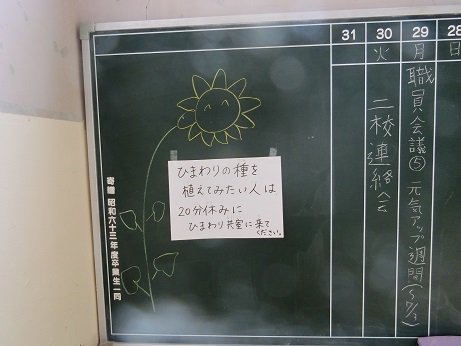 31 30 29 28
火 月 日
職員会議⑤ 元気アップ週間(~7/3)
二校連絡会
ひまわりの種を
植えてみたい人は
20分休みに
ひまわり教室に来て
ください。
寄贈 昭和六十三年度卒業生一同